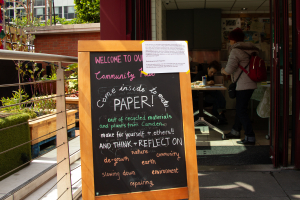 WELCOME TO OU
Community
Come inside to make
PAPER!
out of recycled materials
and plants from Camden
make for yourself + others!!
AND THINK + REFLECTION
nature community
de-growth earth
slowing down environment
repairing